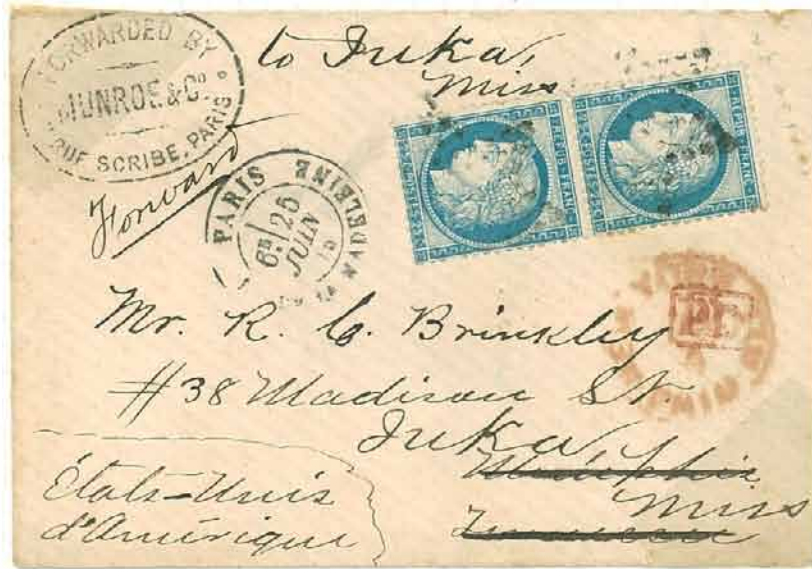 FORWARDED BY
MUNROE & Co
RUE SCRIBE, PARIS
to Iuka,
Miss
Forward
PARIS
MADELEINE
6E 25
JUIN
REPUB. FRANC.
REPUB. FRANC.
PD
Mr. R. C. Brinkley
#38 Madison St.
Iuka,
Memphis
Miss
Tennessee
États-Unis
d'Amérique